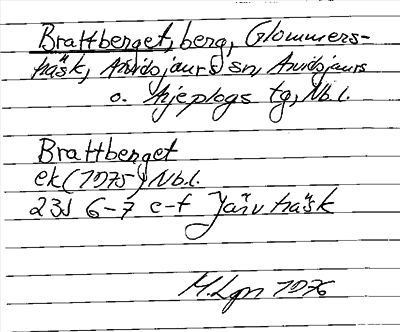 Brattberget, berg, Glommers-
träsk, Arvidsjaurs sn, Arvidsjaurs
o. Arjeplogs tg, Nb.l.
Brattberget
ek (1975) Nb.l.
23J 6-7 e-f Järvträsk
M.Lgn 1976